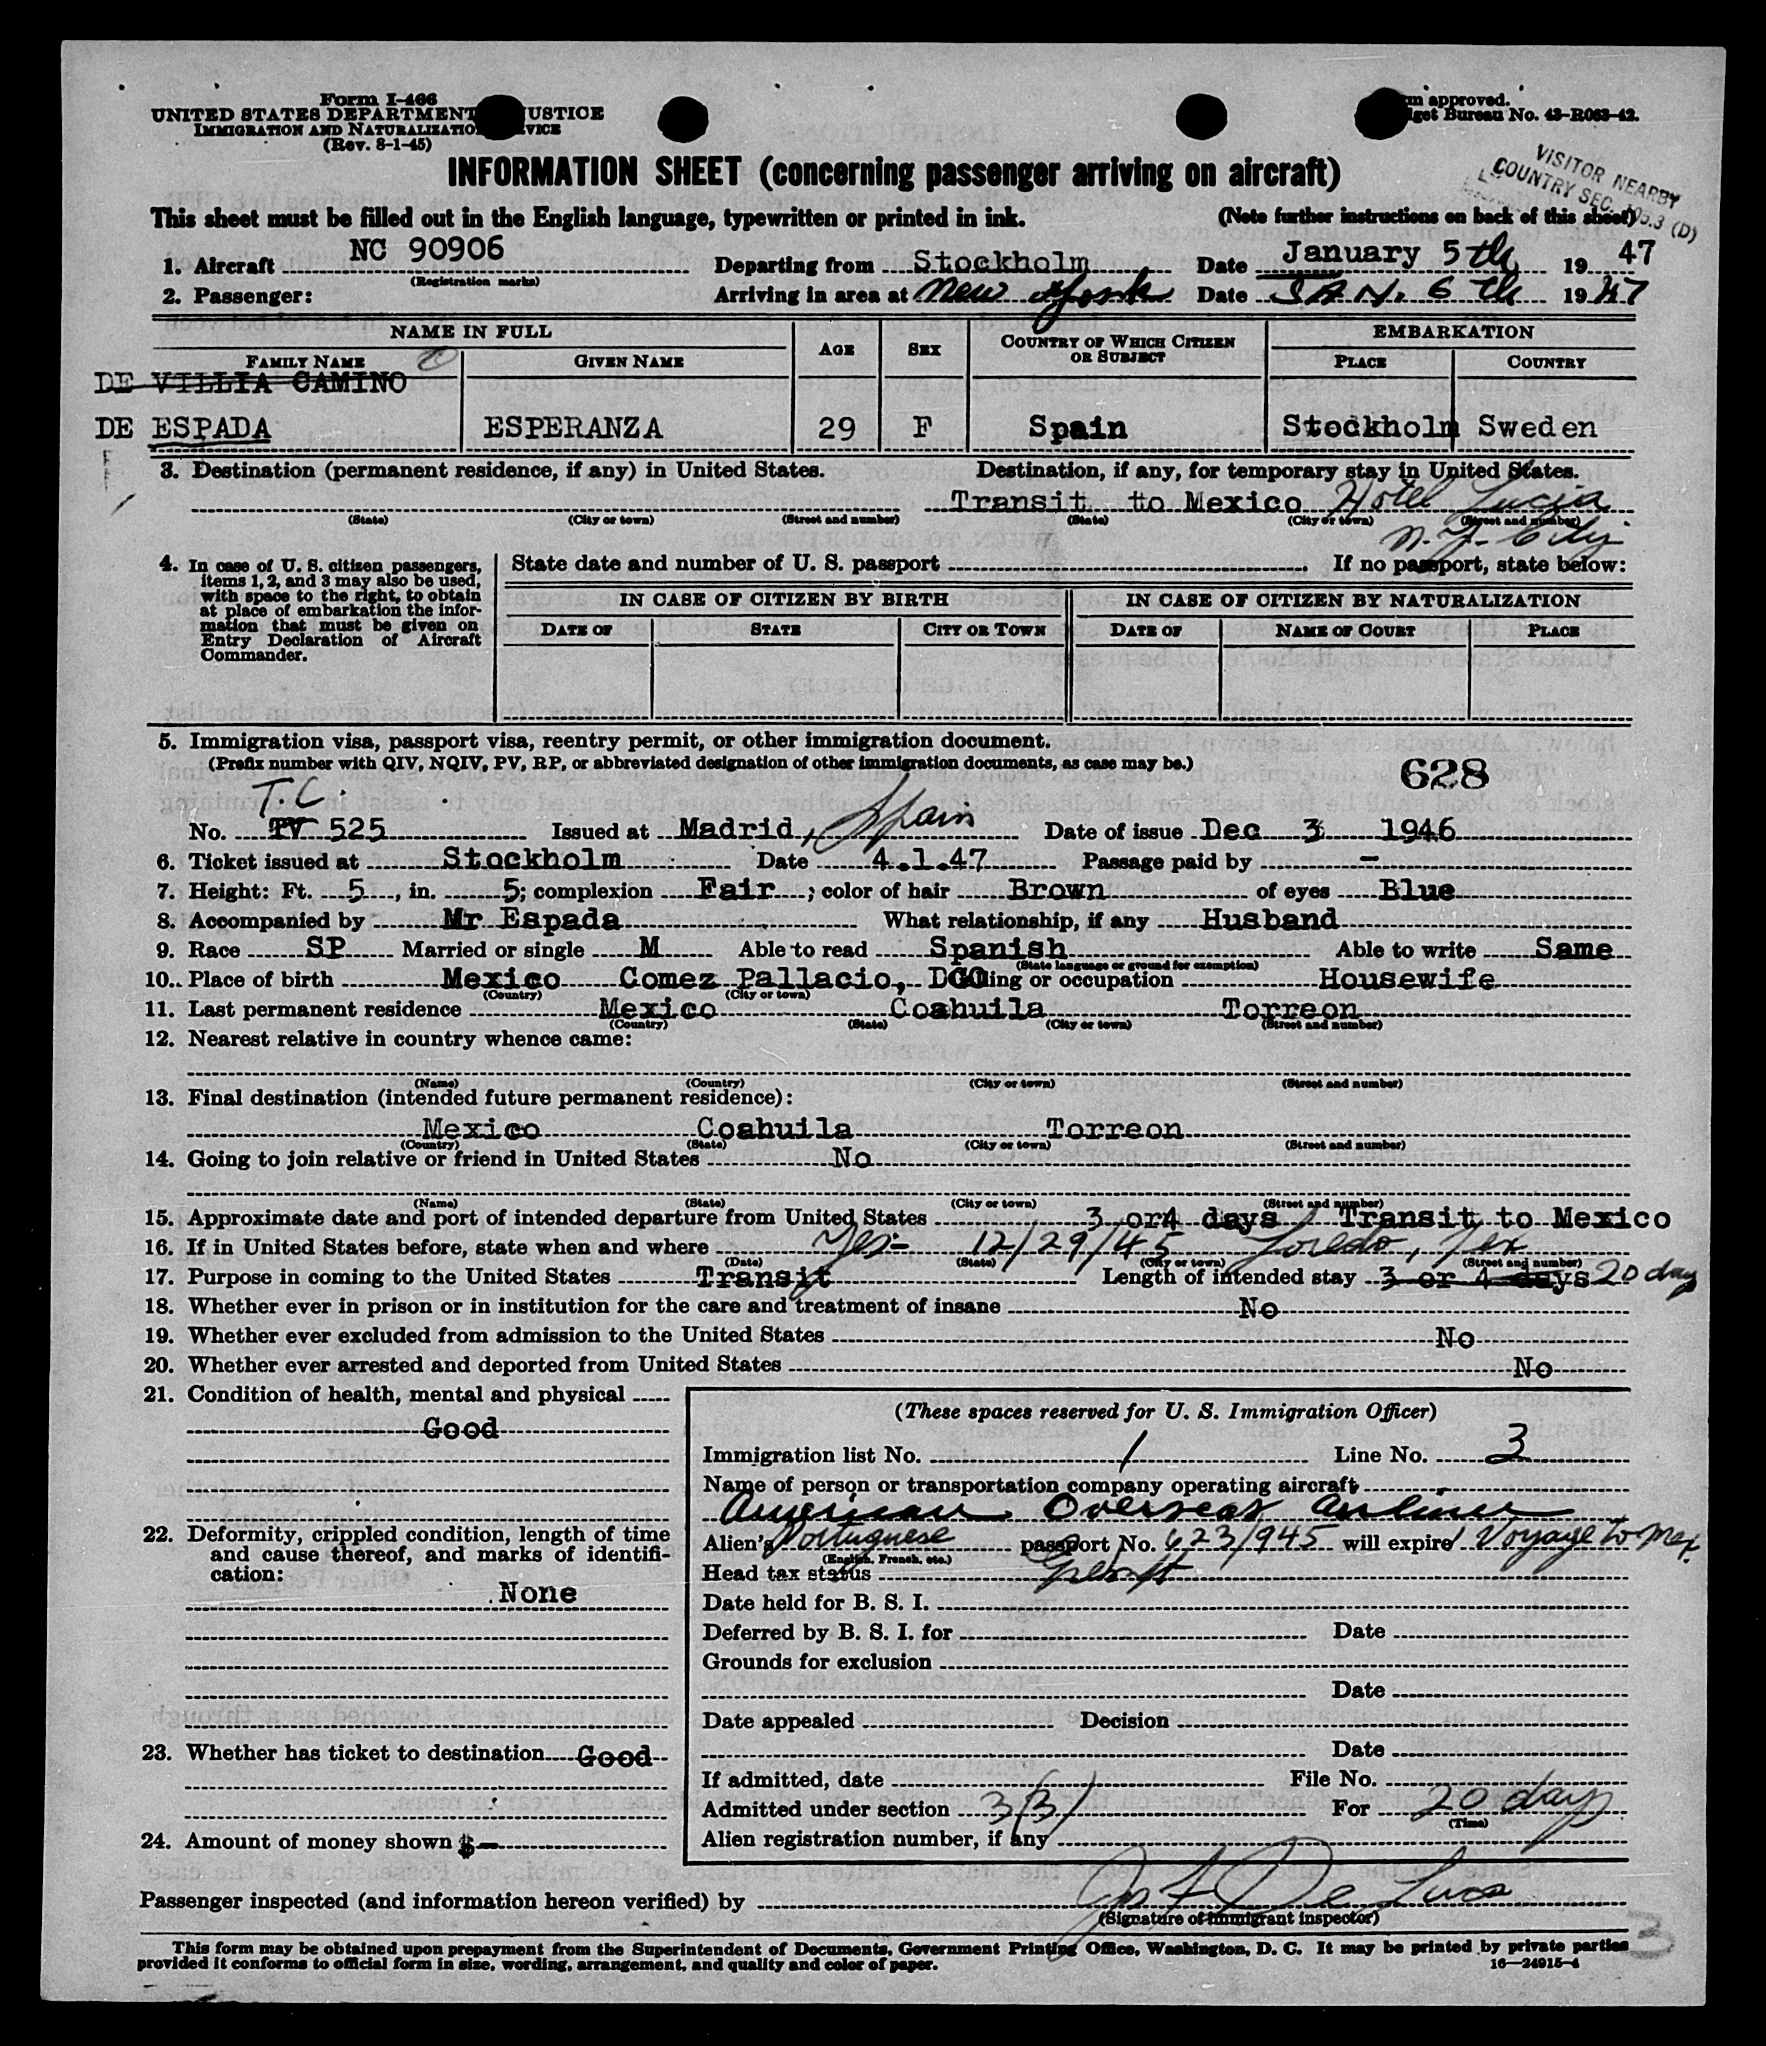 Form I-466
UNITED STATES DEPARTMENT JUSTICE
IMMIGRATION AND NATURALIZATION
(Rev. 8-1-45)
approved.
Bureau No. 43-R063-42.
INFORMATION SHEET (concerning passenger arriving on aircraft)
VISITOR NEARBY
COUNTRY SEC. (D)
This sheet must be filled out in the English language, typewritten or printed in ink. (Note further instructions on back of this sheet)
1. Aircraft NC 90906 Departing from Stockholm Date January 5th 1947
(Registration marks)
2. Passenger: Arriving in area at New York Date JAN. 6th 1947
NAME IN FULL AGE SEX COUNTRY OF WHICH CITIZEN OR SUBJECT EMBARKATION
FAMILY NAME GIVEN NAME PLACE COUNTRY
DE VILLIA CAMINO
DE ESPADA ESPERANZA 29 F Spain Stockholm Sweden
3. Destination (permanent residence, if any) in United States. Destination, if any, for temporary stay in United States.
Transit to Mexico Hotel Lucia
(State) (City or town) (Street and number) (State) (City or town) (Street and number)
N.Y. City
4. In case of U. S. citizen passengers, items 1, 2, and 3 may also be used, with space to the right, to obtain at place of embarkation the information that must be given on Entry Declaration of Aircraft Commander.
State date and number of U. S. passport . If no passport, state below:
IN CASE OF CITIZEN BY BIRTH IN CASE OF CITIZEN BY NATURALIZATION
DATE OF STATE CITY OR TOWN DATE OF NAME OF COURT PLACE
5. Immigration visa, passport visa, reentry permit, or other immigration document.
(Prefix number with QIV, NQIV, PV, RP, or abbreviated designation of other immigration documents, as case may be.) 628
T.C.
No. TV 525 Issued at Madrid, Spain Date of issue Dec 3 1946
6. Ticket issued at Stockholm Date 4.1.47 Passage paid by -
7. Height: Ft. 5, in. 5; complexion Fair; color of hair Brown of eyes Blue
8. Accompanied by Mr Espada What relationship, if any Husband
9. Race SP Married or single M Able to read Spanish Able to write Same
(State language or ground for exemption)
10. Place of birth Mexico Gomez Pallacio, DGO ing or occupation Housewife
(Country) (City or town)
11. Last permanent residence Mexico Coahuila Torreon
(Country) (State) (City or town) (Street and number)
12. Nearest relative in country whence came:
(Name) (Country) (City or town) (Street and number)
13. Final destination (intended future permanent residence):
Mexico Coahuila Torreon
(Country) (State) (City or town) (Street and number)
14. Going to join relative or friend in United States No
(Name) (State) (City or town) (Street and number)
15. Approximate date and port of intended departure from United States 3 or4 days Transit to Mexico
16. If in United States before, state when and where Yes- 12/29/45 Loredo, Tex
(Date) (State) (City or town) (Street and number)
17. Purpose in coming to the United States Transit Length of intended stay 3 or 4 days 20 days
18. Whether ever in prison or in institution for the care and treatment of insane No
19. Whether ever excluded from admission to the United States No
20. Whether ever arrested and deported from United States No
21. Condition of health, mental and physical
Good
22. Deformity, crippled condition, length of time and cause thereof, and marks of identification:
None
23. Whether has ticket to destination Good
24. Amount of money shown $-
(These spaces reserved for U. S. Immigration Officer)
Immigration list No. 1 Line No. 3
Name of person or transportation company operating aircraft
American Overseas Airlines
Alien's Portuguese passport No. 623/945 will expire Voyage to Mex.
(English, French, etc.)
Head tax status
Date held for B. S. I.
Deferred by B. S. I. for Date
Grounds for exclusion
Date
Date appealed Decision
Date
If admitted, date File No.
Admitted under section 3(3) For 20 days
(Time)
Alien registration number, if any
Passenger inspected (and information hereon verified) by Jos F De Luca
(Signature of immigrant inspector)
3
This form may be obtained upon prepayment from the Superintendent of Documents, Government Printing Office, Washington, D. C. It may be printed by private parties
provided it conforms to official form in size, wording, arrangement, and quality and color of paper. 16—24915-4